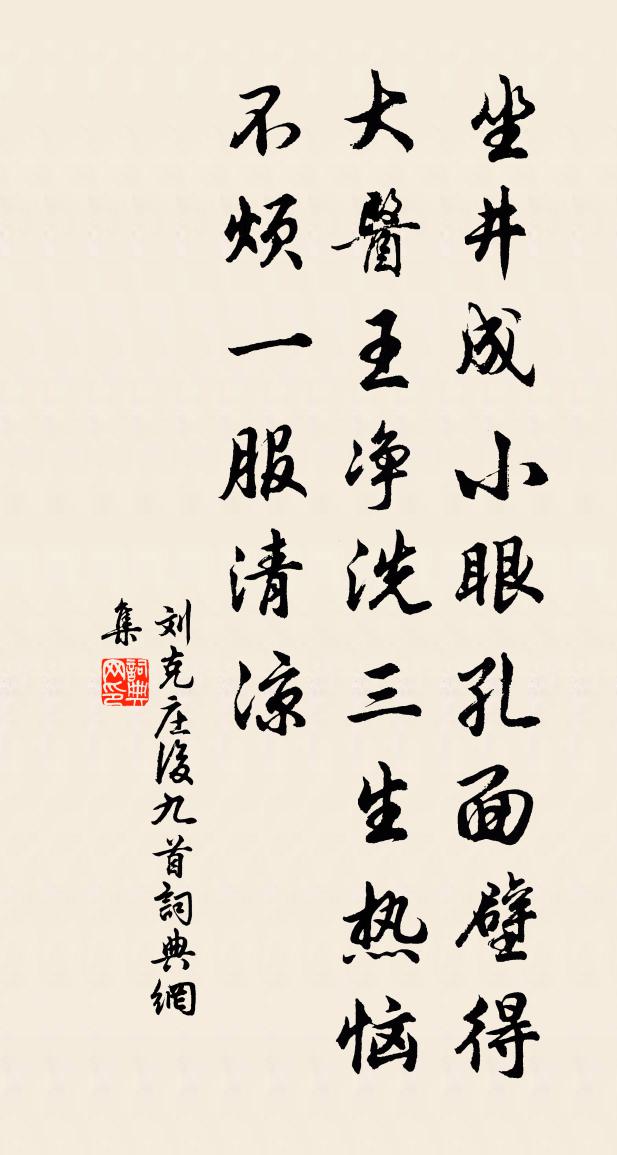 坐井成小眼孔面壁得
大醫王净洗三生热恼
不烦一服清凉
刘克庄後九首詞典網
集
詞典網印